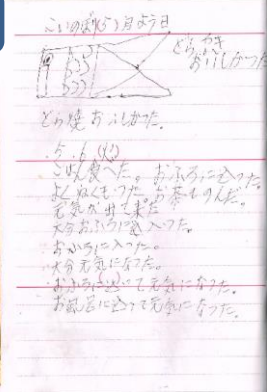 こいのぼり 5月よう日
どらやき
おいしかった
どら焼おいしかった。
・5.6(火)
ごはん食べた。おふろに入った。
よくぬくもった。お茶ものんだ。
元気が出て来た。
大分おふろに入った。
・おふろに入った。
・大分元気になった。
・おふろに入って元気になった。
お風呂に入って元気になった。